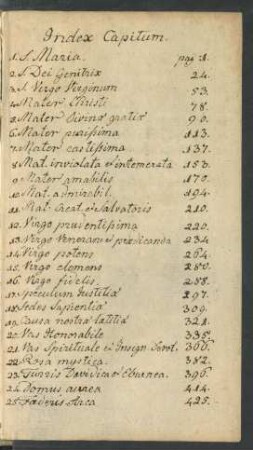 Index Capitum.
1. S. Maria. pag: 1.
2. S. Dei Genitrix 24.
3. S. Virgo Virginum 53.
4. Mater Christi 78.
5. Mater divinæ gratiæ 90.
6. Mater purissima 113.
7. Mater castissima 137.
8. Mat. inviolata & intemerata 153.
9. Mater amabilis 170.
10. Mat. admirabil. 194.
11. Mat. Creat. & Salvatoris 210.
12. Virgo prudentissima 220.
13. Virgo Veneranda & prædicanda 234.
14. Virgo potens 264.
15. Virgo clemens 280.
16. Virgo fidelis. 288.
17. Speculum Justitiæ 297.
18. Sedes Sapientiæ 309.
19. Causa nostræ lætitiæ 321.
20. Vas Honorabile 335.
21. Vas Spirituale & Insign. Devot. 366.
22. Rosa mystica. 382.
23. Turris Davidica & Eburnea. 396.
24. Domus aurea 414.
25. Fœderis Arca 425.